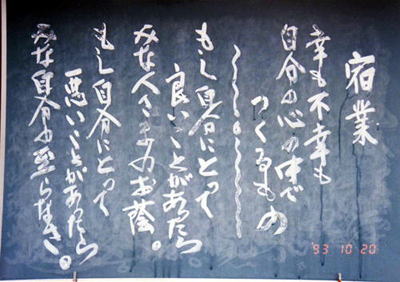 宿業
幸も不幸も
自分の心の中で
つくるもの
もし自分にとって
良いことがあったら
みな人さまのお蔭。
もし自分にとって
悪いことがあったら
みな自分の至らなさ。
'93 10 20